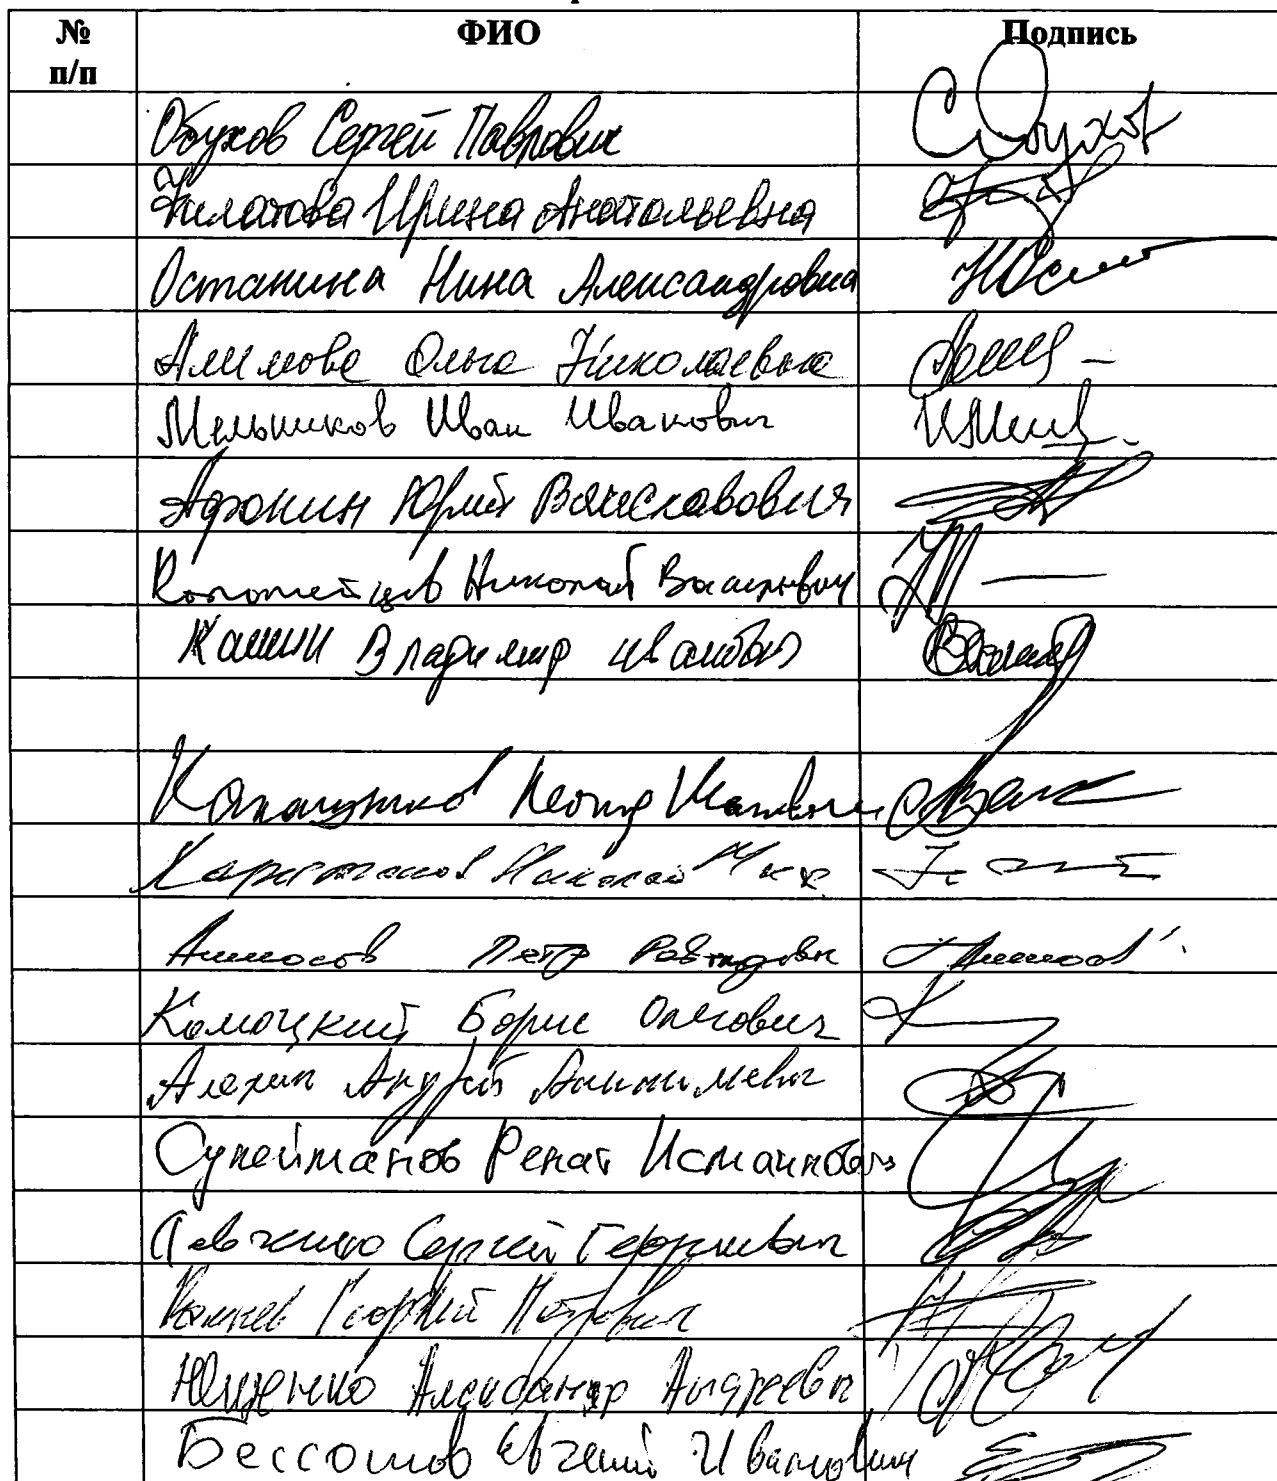 № п/п ФИО Подпись
Обухов Сергей Павлович СОбухов
Филатова Ирина Анатольевна
Останина Нина Александровна НОст
Алимова Ольга Николаевна
Мельников Иван Иванович
Афонин Юрий Вячеславович
Коломейцев Николай Васильевич
Кашин Владимир Иванович
Калашников Леонид Иванович
Харитонов Николай Мих
Аммосов Петр Револьдович Аммосов
Комоцкий Борис Олегович
Алехин Андрей Анатольевич
Сулейманов Ренат Исмаилович
Левченко Сергей Георгиевич
Камнев Георгий Петрович
Ющенко Александр Андреевич
Бессонов Евгений Иванович